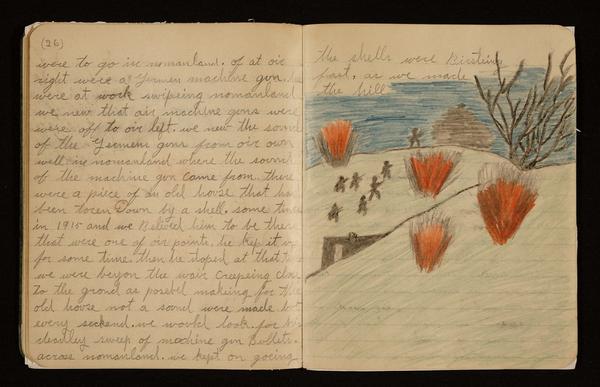 (26)
were to go in nomanland. of at oir
right were a Germen machine gon.
were at work swipeing nomanland
we new that oir machine gons were
were off to oir left. we new the sound
of the Germens guns from oir own
well in nomanland where the sound
of the machine gon came from there
were a piece of an old house that had
been toren Down by a shell. some time
in 1915 and we Belived him to be there
that were one of oir points. he kep it up
for some time then he stoped at that
we were beyon the wair creepeing close
to the grond as posebel makeing for the
old house not a sond were made but
every seckend. we would look for his
deadley sweep of machine gon Bullets.
across nomanland. we kept on goeing
the shells were Birsting
fast, as we made
the hill